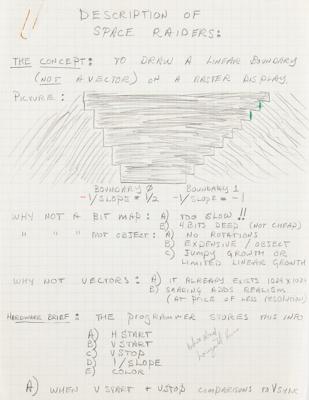 DESCRIPTION OF
SPACE RAIDERS:
THE CONCEPT: TO DRAW A LINEAR BOUNDARY
(NOT A VECTOR) ON A RASTER DISPLAY.
PICTURE:
BOUNDARY 0 BOUNDARY 1
-1/SLOPE = 1/2 -1/SLOPE = -1
WHY NOT A BIT MAP: A) TOO SLOW!!
B) 4 BITS DEEP (NOT CHEAP)
" " " MOT OBJECT: A) NO ROTATIONS
B) EXPENSIVE / OBJECT
C) JUMPY GROWTH OR
LIMITED LINEAR GROWTH
WHY NOT VECTORS: A) IT ALREADY EXISTS 1024x1024
B) SHADING ADDS REALISM
(AT PRICE OF LESS RESOLUTION)
HARDWARE BRIEF: THE PROGRAMMER STORES THIS INFO
A) H START
B) V START
C) V STOP
D) 1/SLOPE
E) COLOR
A) WHEN V START + V STOP COMPARISONS TO V SYNC